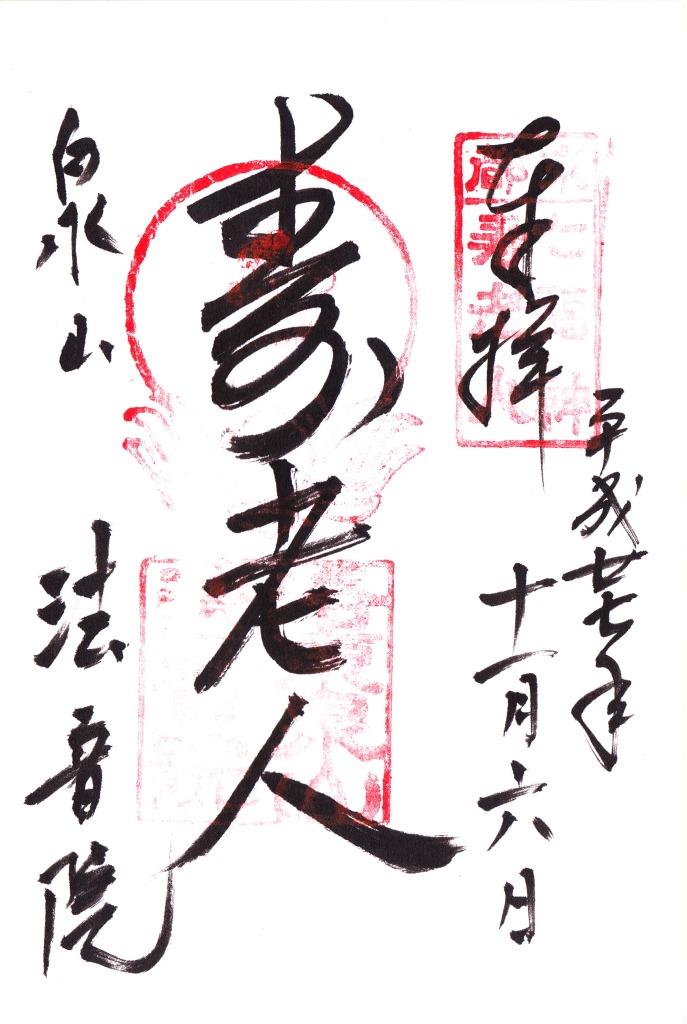 奉拝
平成廿七年
十一月六日
寿老人
泉山
法音院